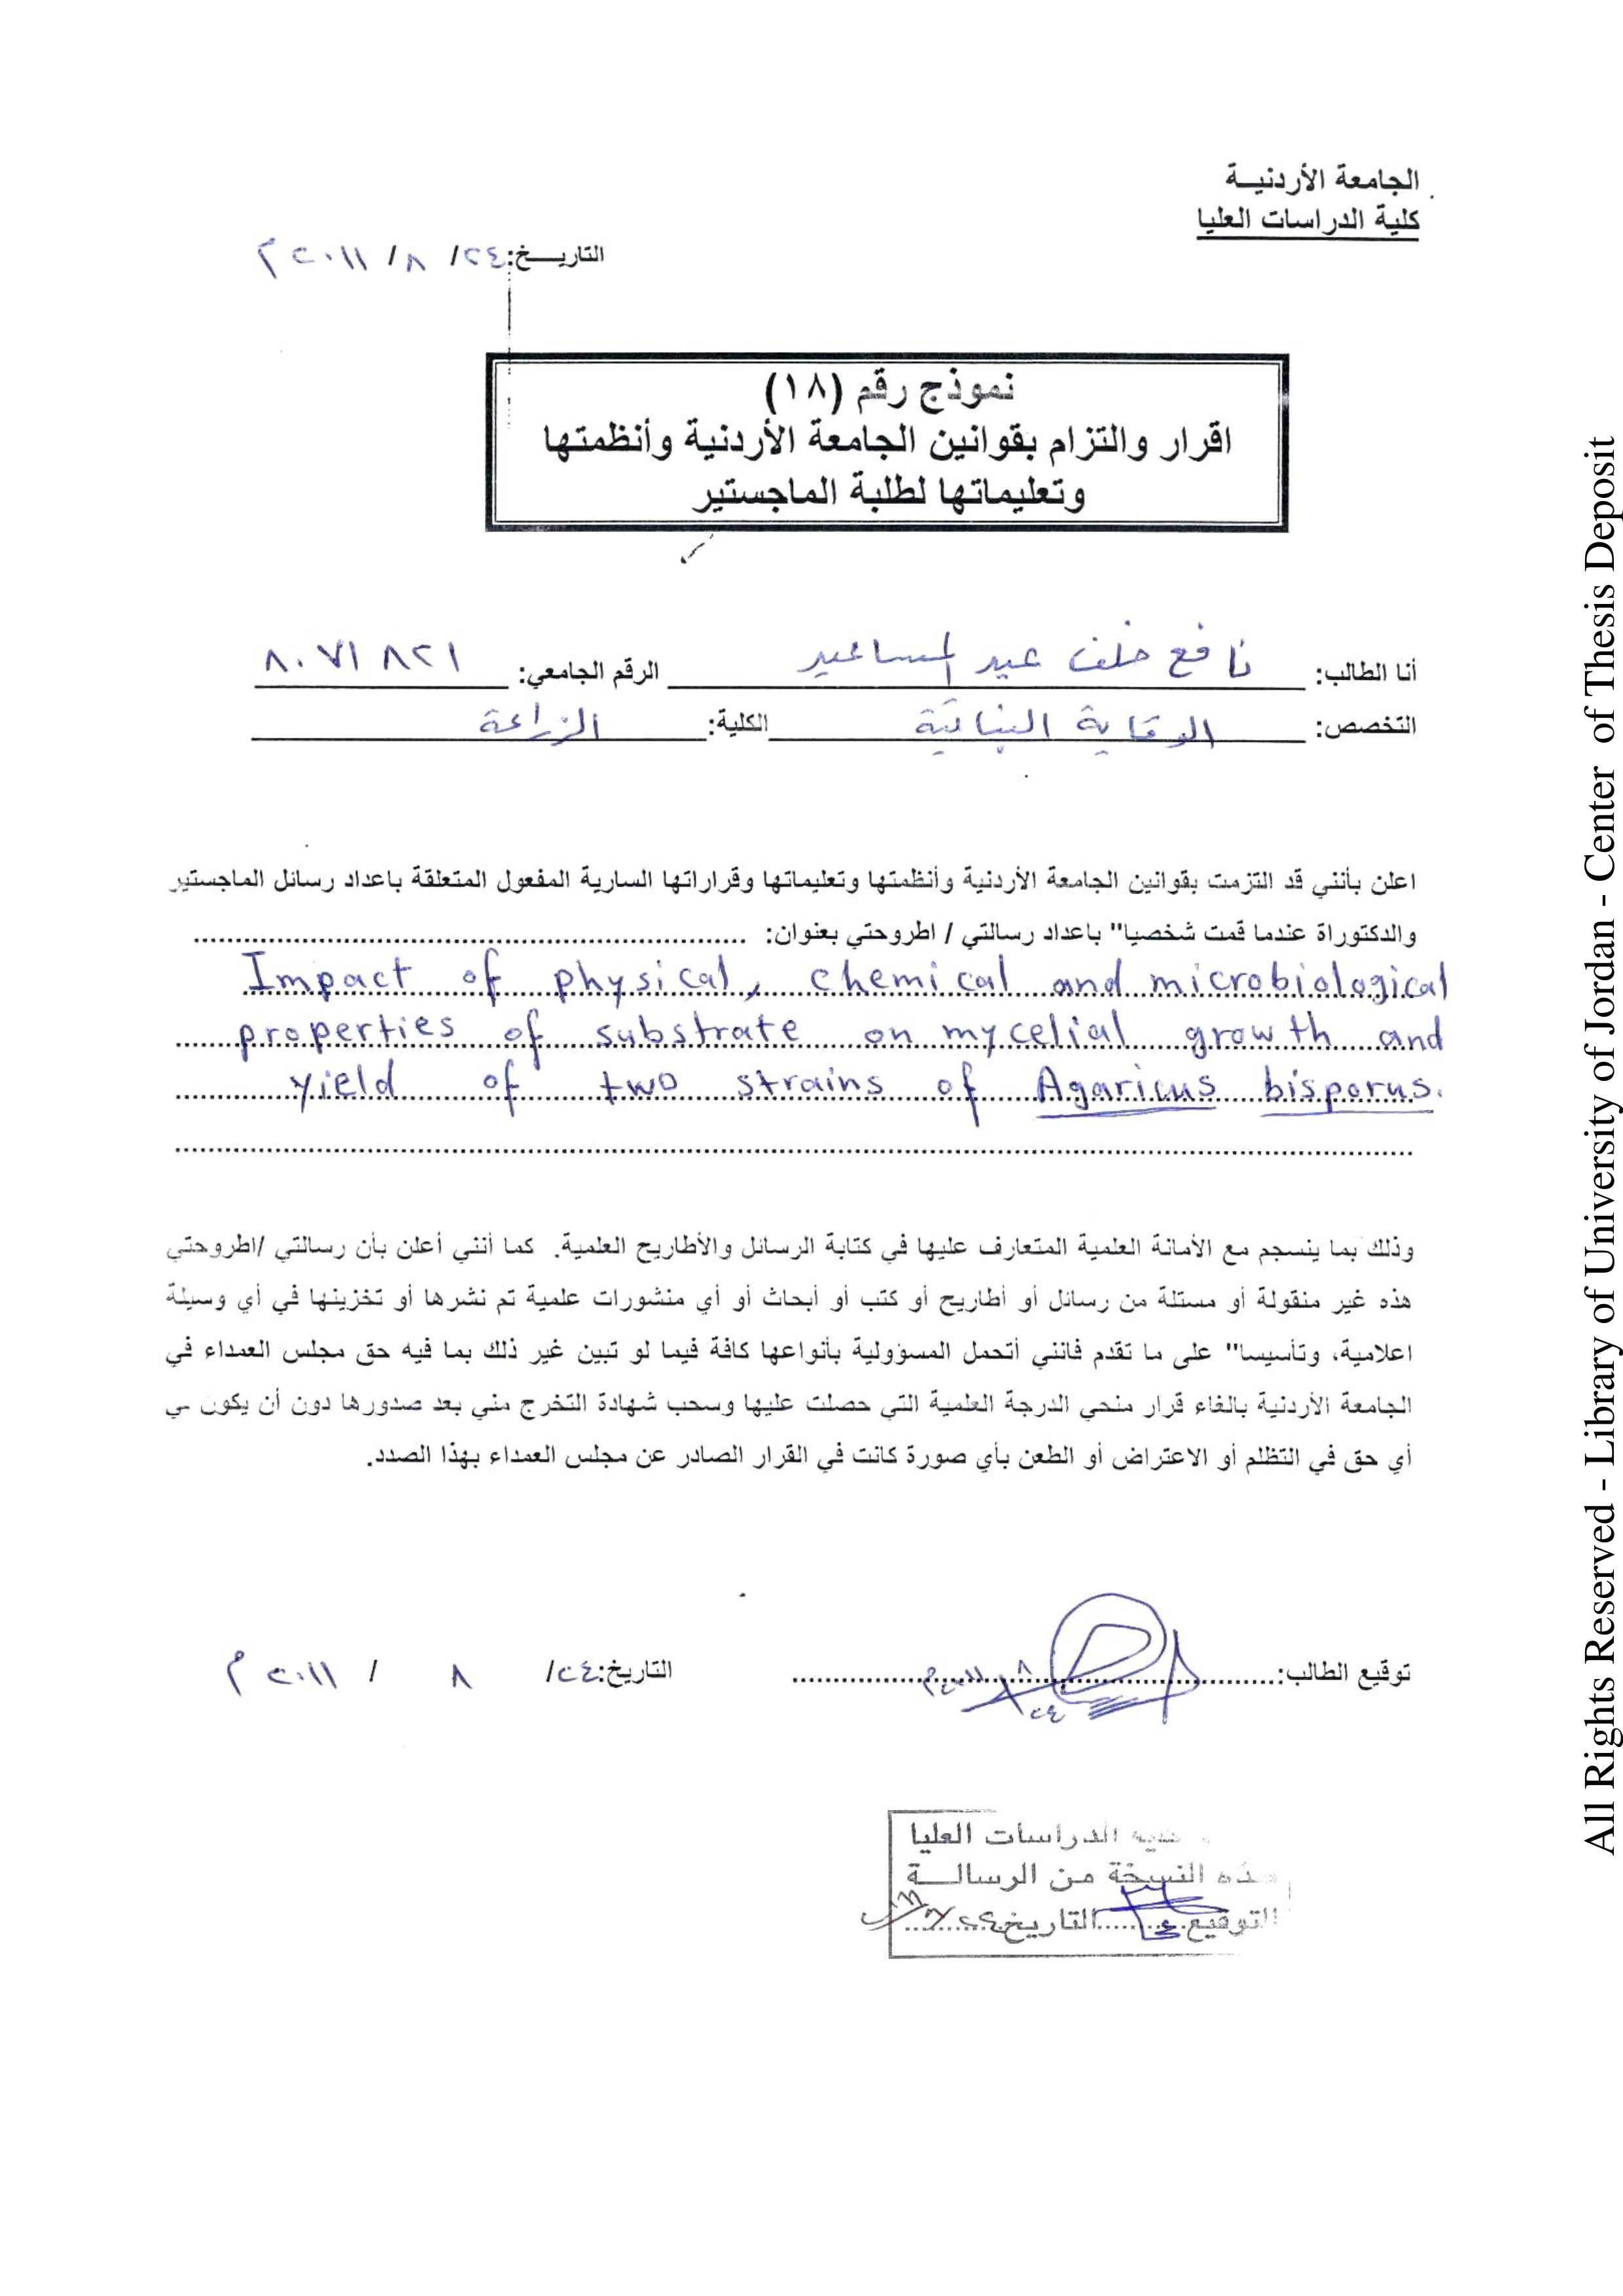 الجامعة الأردنيـــة
كلية الدراسات العليا
التاريـــخ: ٢٤/ ٨/ ٢٠١١ م
نموذج رقم (١٨)
اقرار والتزام بقوانين الجامعة الأردنية وأنظمتها
وتعليماتها لطلبة الماجستير
أنا الطالب: نافع خلف عيد المساعيد الرقم الجامعي: ٨٠٧١٨٢١
التخصص: الوقاية النباتية الكلية: الزراعة
اعلن بأنني قد التزمت بقوانين الجامعة الأردنية وأنظمتها وتعليماتها وقراراتها السارية المفعول المتعلقة باعداد رسائل الماجستير
والدكتوراة عندما قمت شخصيا" باعداد رسالتي / اطروحتي بعنوان:
Impact of physical, chemical and microbiological
properties of substrate on mycelial growth and
yield of two strains of Agaricus bisporus.
وذلك بما ينسجم مع الأمانة العلمية المتعارف عليها في كتابة الرسائل والأطاريح العلمية. كما أنني أعلن بأن رسالتي /اطروحتي
هذه غير منقولة أو مستلة من رسائل أو أطاريح أو كتب أو أبحاث أو أي منشورات علمية تم نشرها أو تخزينها في أي وسيلة
اعلامية، وتأسيسا" على ما تقدم فانني أتحمل المسؤولية بأنواعها كافة فيما لو تبين غير ذلك بما فيه حق مجلس العمداء في
الجامعة الأردنية بالغاء قرار منحي الدرجة العلمية التي حصلت عليها وسحب شهادة التخرج مني بعد صدورها دون أن يكون لي
أي حق في التظلم أو الاعتراض أو الطعن بأي صورة كانت في القرار الصادر عن مجلس العمداء بهذا الصدد.
توقيع الطالب: ٢٤ ٨ ٢٠١١م التاريخ: ٢٤/ ٨ / ٢٠١١ م
الدراسات العليا
هذه النسخة من الرسالـــة
التوقيع التاريخ ٢٤
All Rights Reserved - Library of University of Jordan - Center of Thesis Deposit